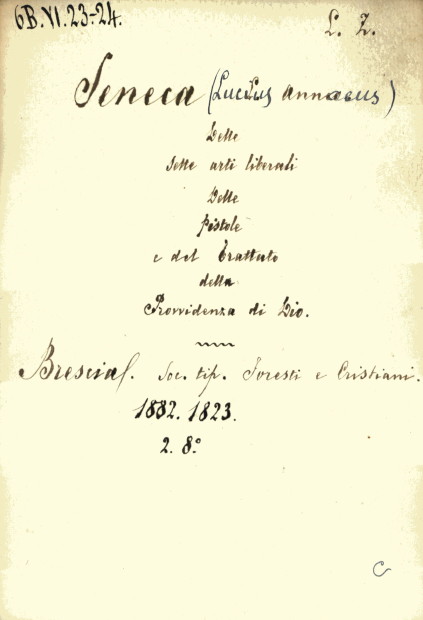 6B.VI.23-24.
L. Z.
Seneca (Lucius Annaeus)
Delle
sette arti liberali
Delle
pistole
e del Trattato
della
Provvidenza di Dio.
Brescia. Soc. tip. Foresti e Cristiani.
1882. 1823.
2. 8º
C